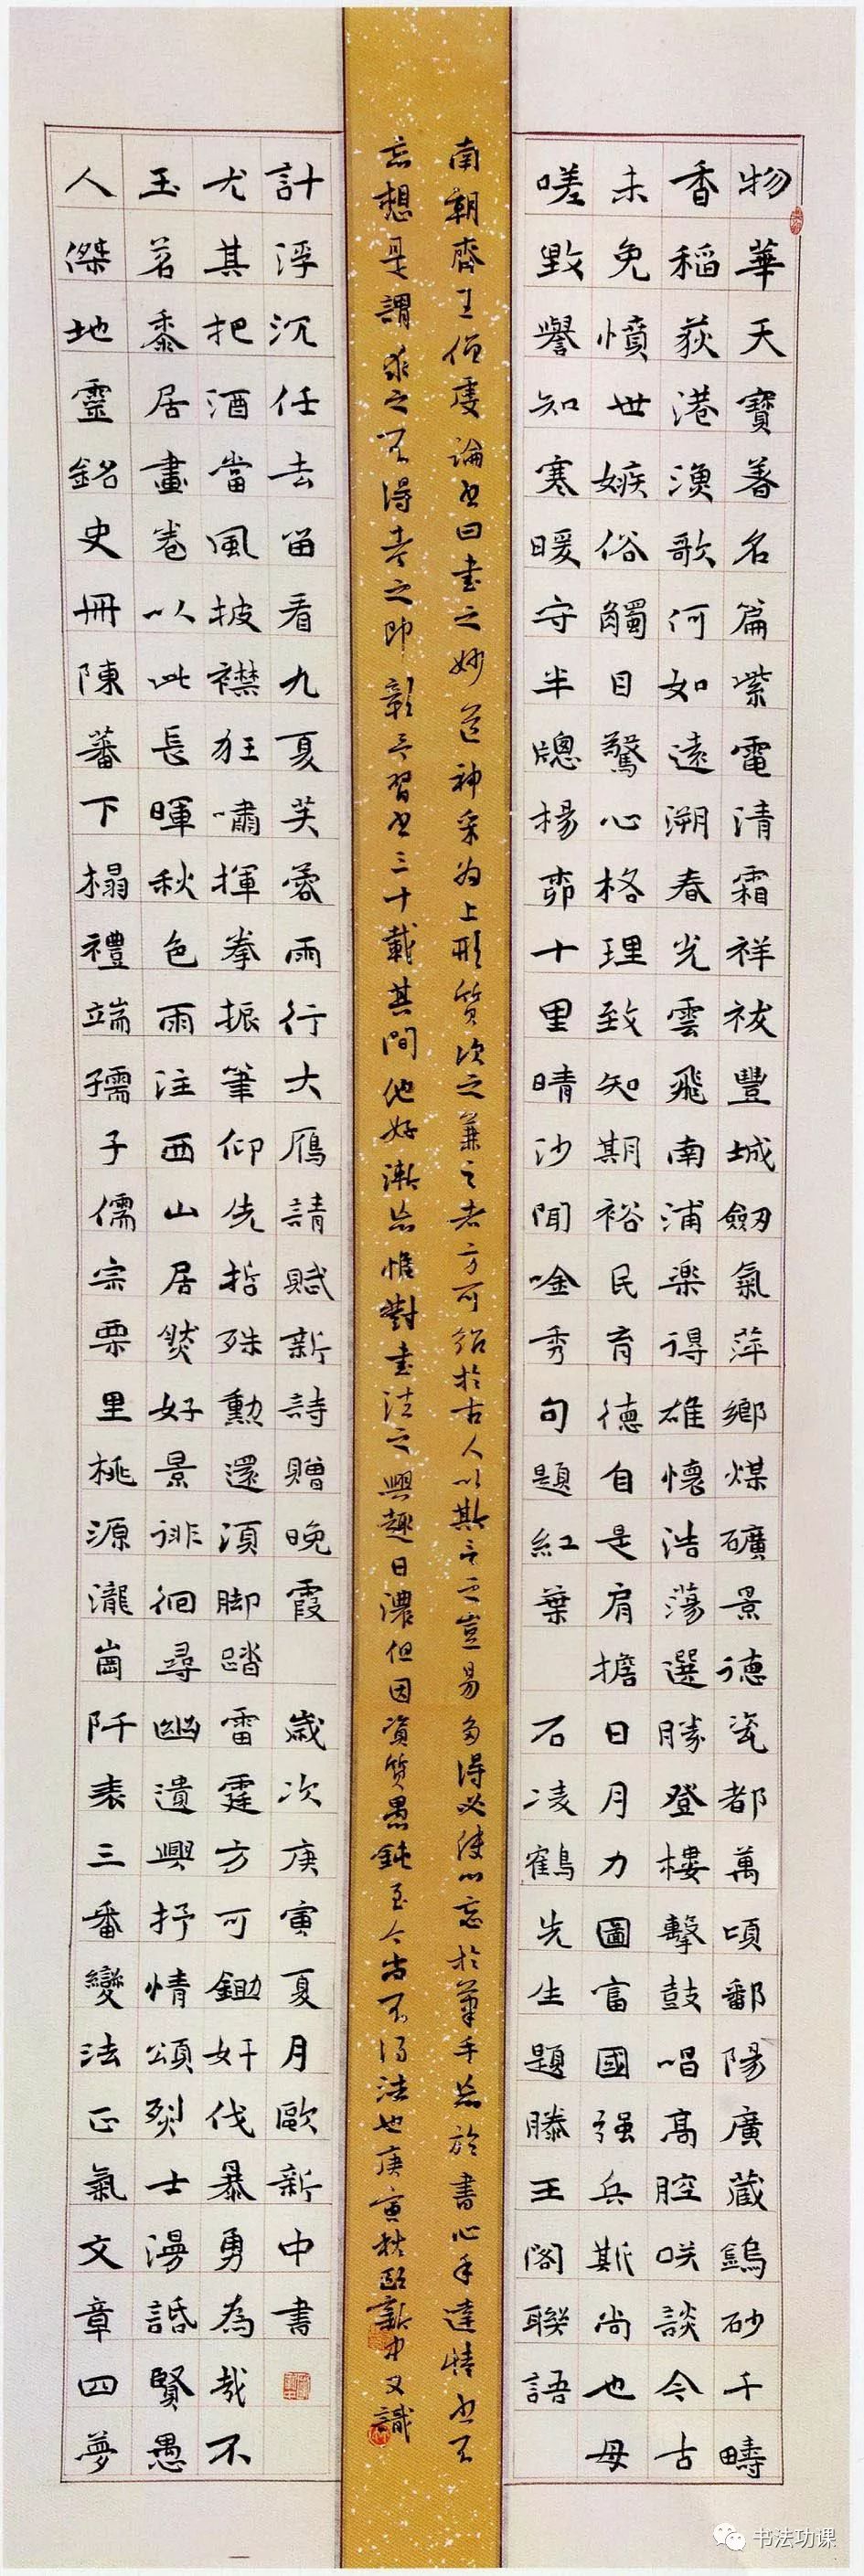 物華天寶著名篇紫電清霜祥祓豐城劔氣萍鄉煤礦景德瓷都萬頃鄱陽廣藏鎢砂千疇
香稻荻港漁歌何如遠溯春光雲飛南浦樂得雄懷浩蕩選勝登樓擊鼓唱高腔咲談今古
未免憤世嫉俗觸目驚心格理致知期裕民育德自是肩擔日月力圖富國强兵斯尚也毋
嗟毀譽知寒暖守半牕楊茆十里晴沙閒唫秀句題紅葉 石凌鶴先生題滕王閣聯語
南朝齊王僧虔論書曰書之妙道神采為上形質次之兼之者方可紹於古人以斯言之豈易多得必使心忘於筆手忘於書心手達情書不
忘想是謂求之不得考之即彰吾習書三十載其間他好漸忘惟對書法之興趣日濃但因資質愚鈍至今尚不得法也庚寅秋歐新中又識
人傑地靈銘史冊陳蕃下榻禮端孺子儒宗栗里桃源瀧崗阡表三番變法正氣文章四夢
玉茗黍居畫卷以此長暉秋色雨注西山居然好景徘徊尋幽遺興抒情頌烈士漫話賢愚
尤其把酒當風披襟狂嘯揮拳振筆仰先哲殊勳還須脚踏雷霆方可鋤奸伐暴勇為哉不
計浮沉任去留看九夏芙蓉雨行大雁請賦新詩贈晚霞 歲次庚寅夏月歐新中書
书法功课